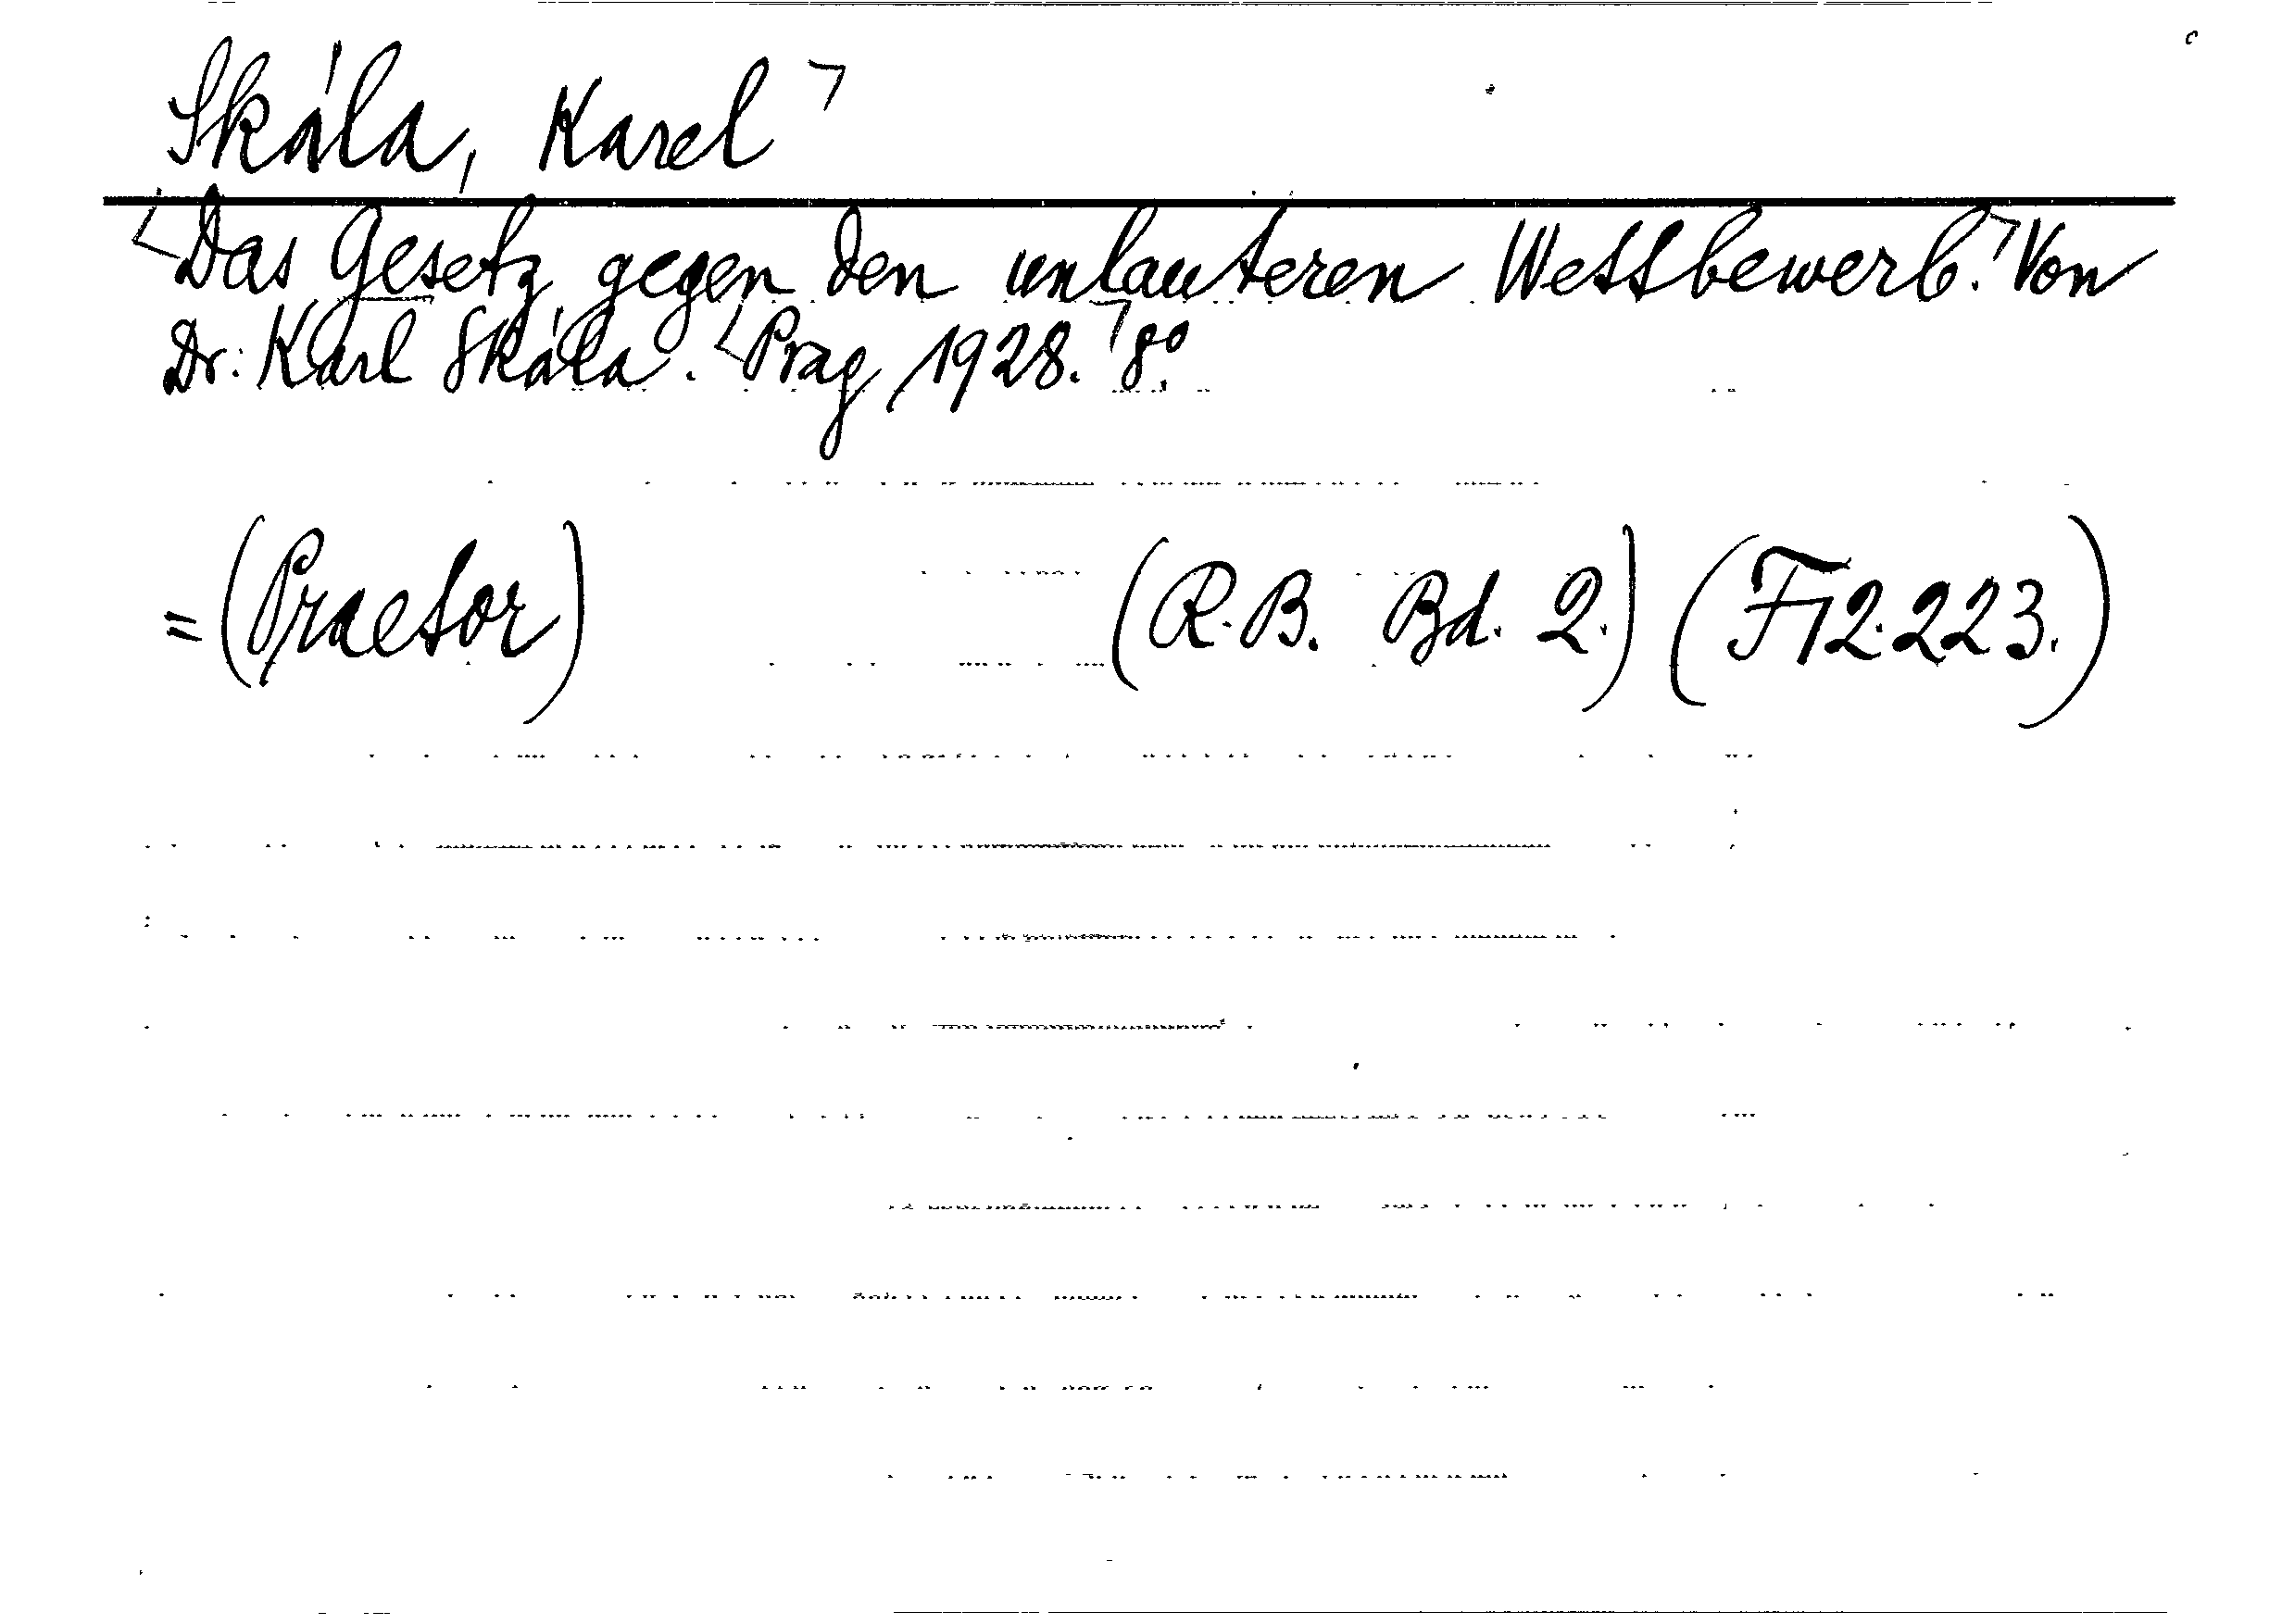 Skála, Karel
Das Gesetz gegen den unlauteren Wettbewerb. Von
Dr. Karl Skála. Prag, 1928. 8°.
= (Praetor) (R.B. Bd. 2.) (F12.223.)